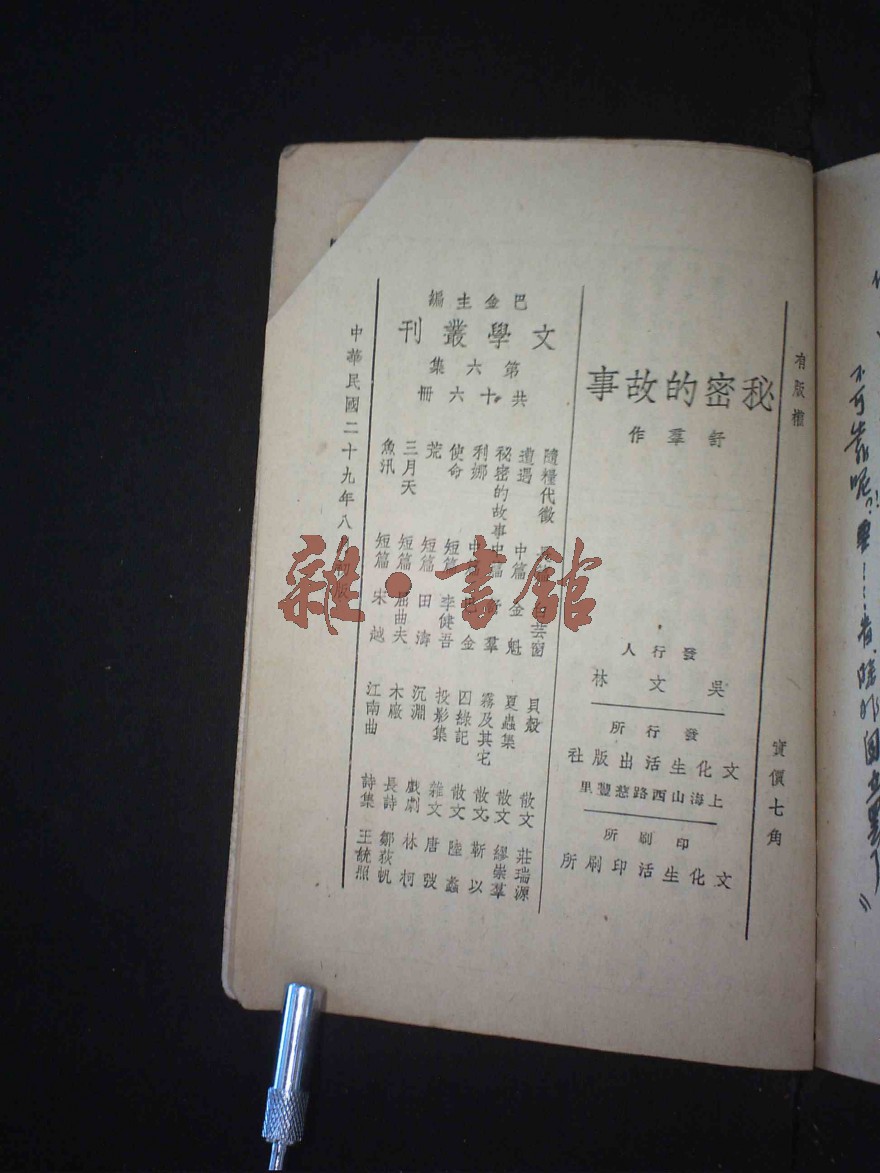 有版權
實價七角
秘密的故事
舒羣作
發行人
吳文林
發行所
文化生活出版社
上海山西路慈豐里
印刷所
文化生活印刷所
巴金主編
文學叢刊
第六集
共十六冊
隨糧代徵 芸窗
遭遇 中篇 金魁
秘密的故事 中篇 舒羣
利娜 中篇 巴金
使命 短篇 李健吾
荒 短篇 田濤
三月天 短篇 屈曲夫
魚汛 短篇 宋越
貝殼 散文 莊瑞源
夏蟲集 散文 繆崇羣
霧及其它 散文 靳以
囚綠記 散文 陸蠡
投影集 雜文 唐弢
沉淵 戲劇 林柯
木廠 長詩 鄒荻帆
江南曲 詩集 王統照
中華民國二十九年八 初版
雜·書館
不可靠呢?!